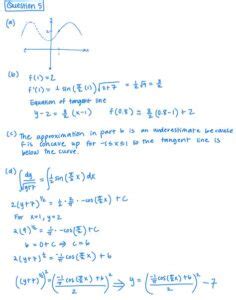 Question 5
(a)
(b)
f(1) = 2
f'(1) = 1/2 sin(π/2 (1)) √(2+7) = 1/2 √9 = 3/2
Equation of tangent line
y - 2 = 3/2 (x-1) f(0.8) ≈ 3/2 (0.8-1) + 2
(c) The approximation in part b is an underestimate because
f is concave up for -1≤x≤1 so the tangent line is
below the curve.
(d) ∫ dy/√(y+7) = ∫ 1/2 sin(π/2 x) dx
2(y+7)^(1/2) = 1/2 · 2/π · -cos(π/2 x) + C
For x=1, y=2
2(9)^(1/2) = · -cos(π/2) + C
6 = 0 + C → C = 6
2(y+7)^(1/2) = cos(π/2 x) + 6
cos(π/2 x) + 6 / 2 )² ⇒ y = ( cos(π/2 x) + 6 / 2 )² - 7